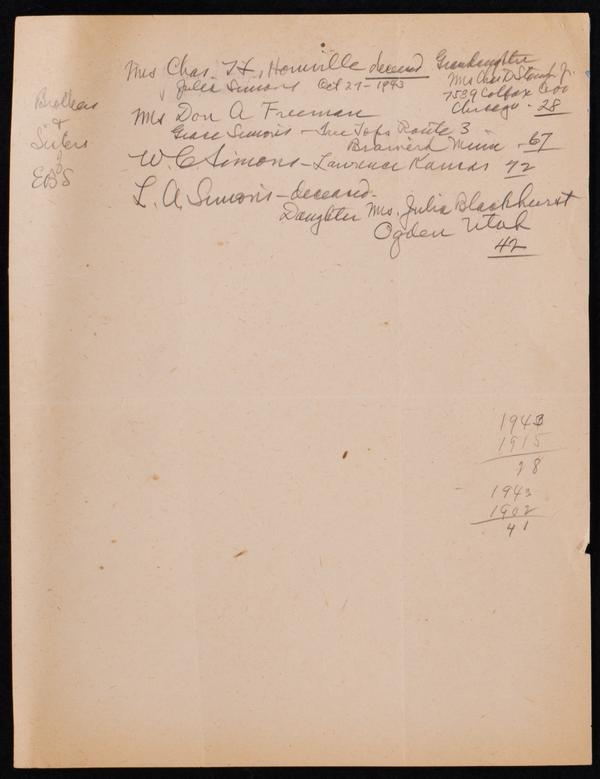 Mrs Chas. H. Hornville deceased Granddaughter
Julia Simons Oct 27-1943
Mrs Chas D Stamp Jr.
7539 Colfax
Chicago - 28
Brothers
&
Sisters
of
EBS
Mrs Don A Freeman
Grace Simons - Tree Tops Route 3 -
Brainerd Minn - 67
W. C Simons - Lawrence Kansas 72
L. A. Simons - deceased -
Daughter Mrs. Julia Blackhurst
Ogden Utah
42
1943
1915
28
1943
1902
41